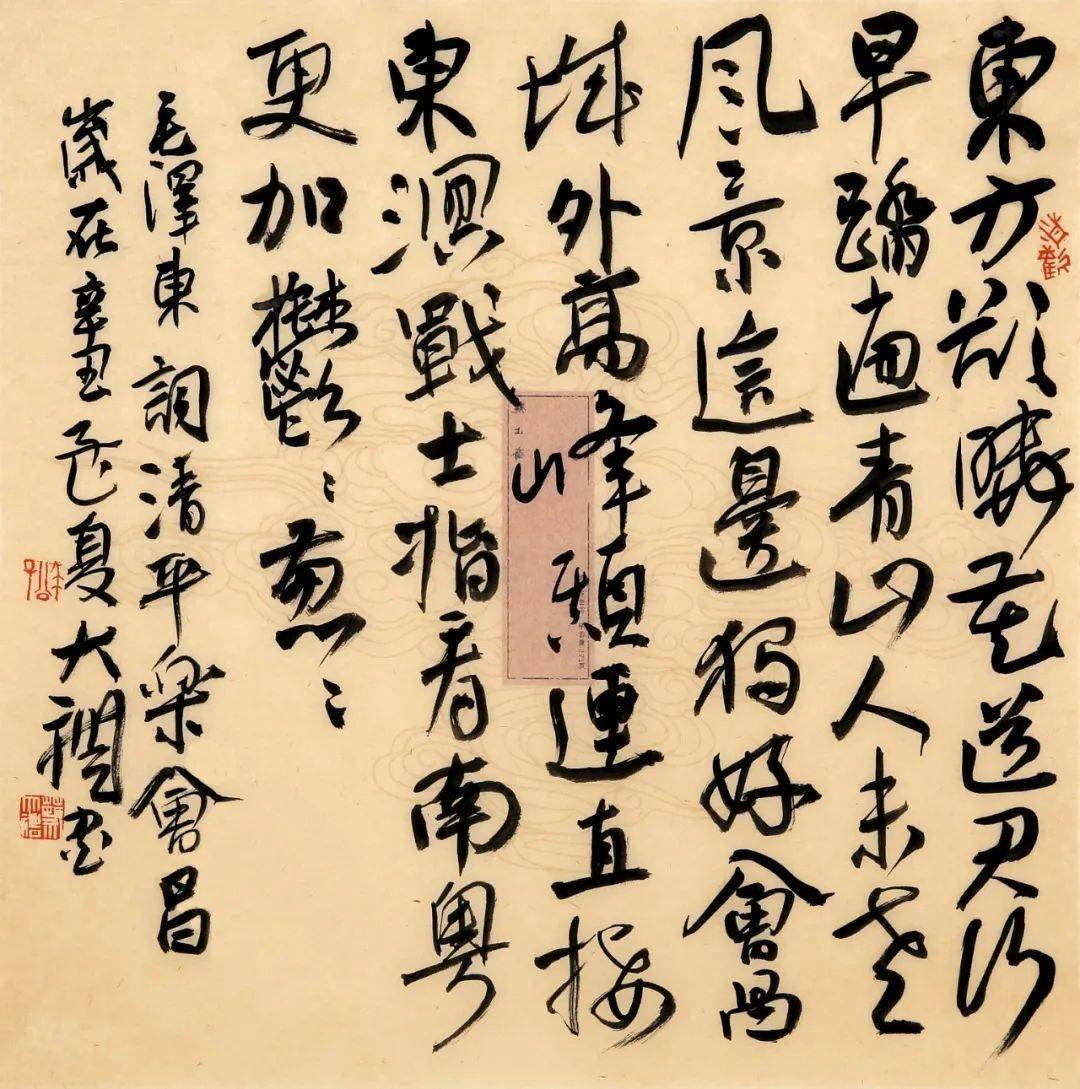 東方欲曉莫道君行
早踏遍青山人未老
風景這邊獨好會昌
城外高峰顛連直接
東溟戰士指看南粵
更加鬱〻葱〻
毛澤東詞清平樂會昌
歲在辛丑孟夏大書